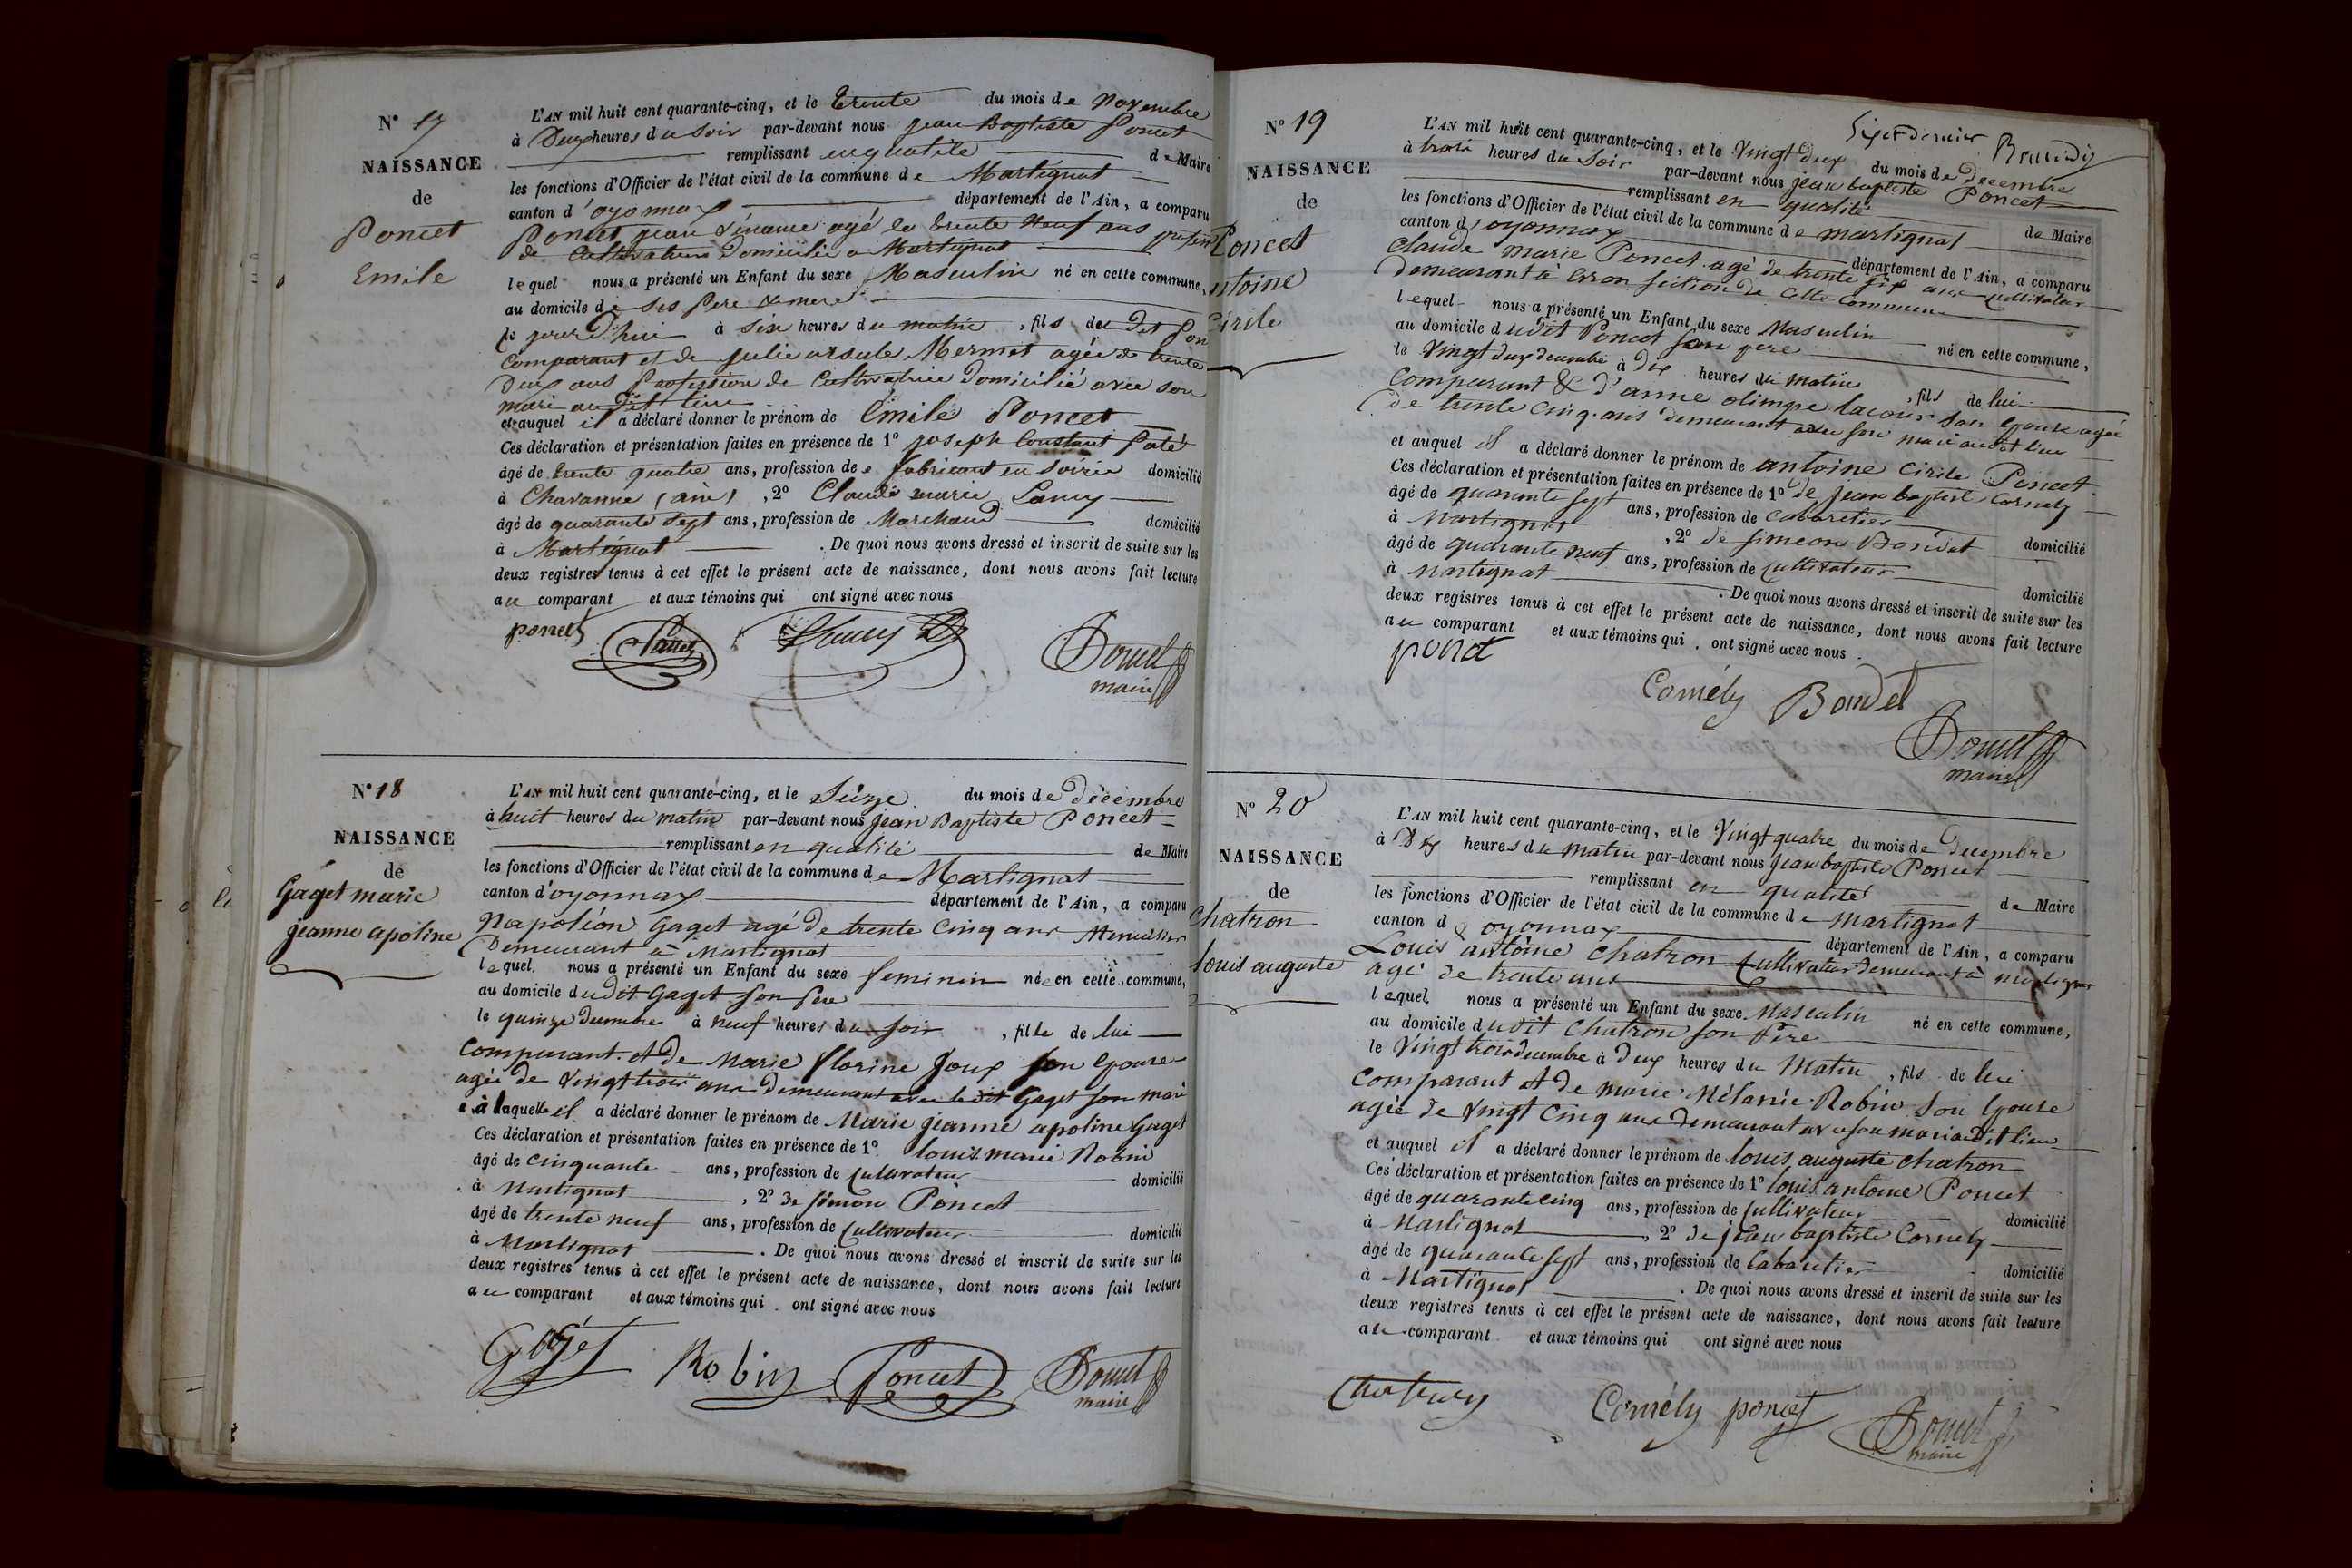 N° 17
NAISSANCE
de
Poncet
Emile
L'AN mil huit cent quarante-cinq, et le trente du mois de Novembre
à Deux heures du soir par-devant nous jean Baptiste Poncet
remplissant en qualité de Maire
les fonctions d'Officier de l'état civil de la commune de Martignat
canton d'oyonnax département de l'Ain, a comparu
Poncet jean agé de trente Neuf ans
de Cultivateur Domicilié a Martignat
lequel nous a présenté un Enfant du sexe Masculin né en cette commune,
au domicile de ses Pere & mere
ce jourd'hui à six heures du matin, fils du dit Pon
Comparant et de julie ursule Mermet agée de trente
Deux ans Profession de Cultivatrice Domicilié avec son
mari au dit lieu
et auquel il a déclaré donner le prénom de Emile Poncet
Ces déclaration et présentation faites en présence de 1° joseph Constant
âgé de trente quatre ans, profession de fabricant en soierie domicilié
à Chavanne (ain), 2° Claude marie Lancy
âgé de quarante sept ans, profession de Marchand domicilié
à Martignat. De quoi nous avons dressé et inscrit de suite sur les
deux registres tenus à cet effet le présent acte de naissance, dont nous avons fait lecture
au comparant et aux témoins qui ont signé avec nous
poncet Poncet
maire
N° 18
NAISSANCE
de
Gaget marie
jeanne apoline
L'AN mil huit cent quarante-cinq, et le Seize du mois de Décembre
à huit heures du matin par-devant nous jean Baptiste Poncet
remplissant en qualité de Maire
les fonctions d'Officier de l'état civil de la commune de Martignat
canton d'oyonnax département de l'Ain, a comparu
Napoléon Gaget agé de trente cinq ans Menuisier
Demeurant à Martignat
lequel nous a présenté un Enfant du sexe feminin née en cette commune,
au domicile dudit Gaget son père
le quinze Decembre à neuf heures du soir, fille de lui
comparant et de Marie florine Joux son epouse
agée de vingt trois ans Demeurant avec le dit Gaget son mari
et à laquelle il a déclaré donner le prénom de Marie jeanne apoline Gaget
Ces déclaration et présentation faites en présence de 1° louis marie Robin
âgé de cinquante ans, profession de cultivateur domicilié
à Martignat, 2° de simon Poncet
âgé de trente neuf ans, profession de cultivateur domicilié
à Martignat. De quoi nous avons dressé et inscrit de suite sur les
deux registres tenus à cet effet le présent acte de naissance, dont nous avons fait lecture
au comparant et aux témoins qui ont signé avec nous
Gaget Robin Poncet Poncet
maire
N° 19
NAISSANCE
de
Poncet
ntoine
Cirile
L'AN mil huit cent quarante-cinq, et le vingt deux du mois de Decembre
à trois heures du soir par-devant nous jean baptiste Poncet
remplissant en qualité de Maire
les fonctions d'Officier de l'état civil de la commune de martignat
canton d'oyonnax département de l'Ain, a comparu
Claude marie Poncet agé de trente six ans cultivateur
Demeurant à section de cette commune
lequel nous a présenté un Enfant du sexe Masculin né en cette commune,
au domicile dudit Poncet son pere
le vingt deux decembre à dix heures du matin, fils de lui
comparant & d'anne olimpe lacour son epouse agée
de trente cinq ans demeurant avec son mari audit lieu
et auquel il a déclaré donner le prénom de antoine cirile Poncet
Ces déclaration et présentation faites en présence de 1° de jean baptiste Cornely
âgé de quarante sept ans, profession de cabaretier domicilié
à Martignat, 2° de simeon Bondet
âgé de quarante neuf ans, profession de cultivateur domicilié
à Martignat. De quoi nous avons dressé et inscrit de suite sur les
deux registres tenus à cet effet le présent acte de naissance, dont nous avons fait lecture
au comparant et aux témoins qui ont signé avec nous
poncet
Cornély Bondet
Poncet
maire
N° 20
NAISSANCE
de
Chatron
louis auguste
L'AN mil huit cent quarante-cinq, et le vingt quatre du mois de Decembre
à Dix heures du matin par-devant nous jean baptiste Poncet
remplissant en qualité de Maire
les fonctions d'Officier de l'état civil de la commune de Martignat
canton d oyonnax département de l'Ain, a comparu
Louis antoine Chatron cultivateur Demeurant à martignat
agé de trente ans
lequel nous a présenté un Enfant du sexe Masculin né en cette commune,
au domicile dudit Chatron son Père
le vingt trois decembre à Deux heures du Matin, fils de lui
comparant et de marie Mélanie Robin son epouse
agée de vingt cinq ans demeurant avec son mari audit lieu
et auquel il a déclaré donner le prénom de louis auguste chatron
Ces déclaration et présentation faites en présence de 1° louis antoine Poncet
âgé de quarante cinq ans, profession de cultivateur domicilié
à Martignat, 2° de jean baptiste Cornely
âgé de quarante sept ans, profession de cabaretier domicilié
à Martignat. De quoi nous avons dressé et inscrit de suite sur les
deux registres tenus à cet effet le présent acte de naissance, dont nous avons fait lecture
au comparant et aux témoins qui ont signé avec nous
Cornély poncet Poncet
maire